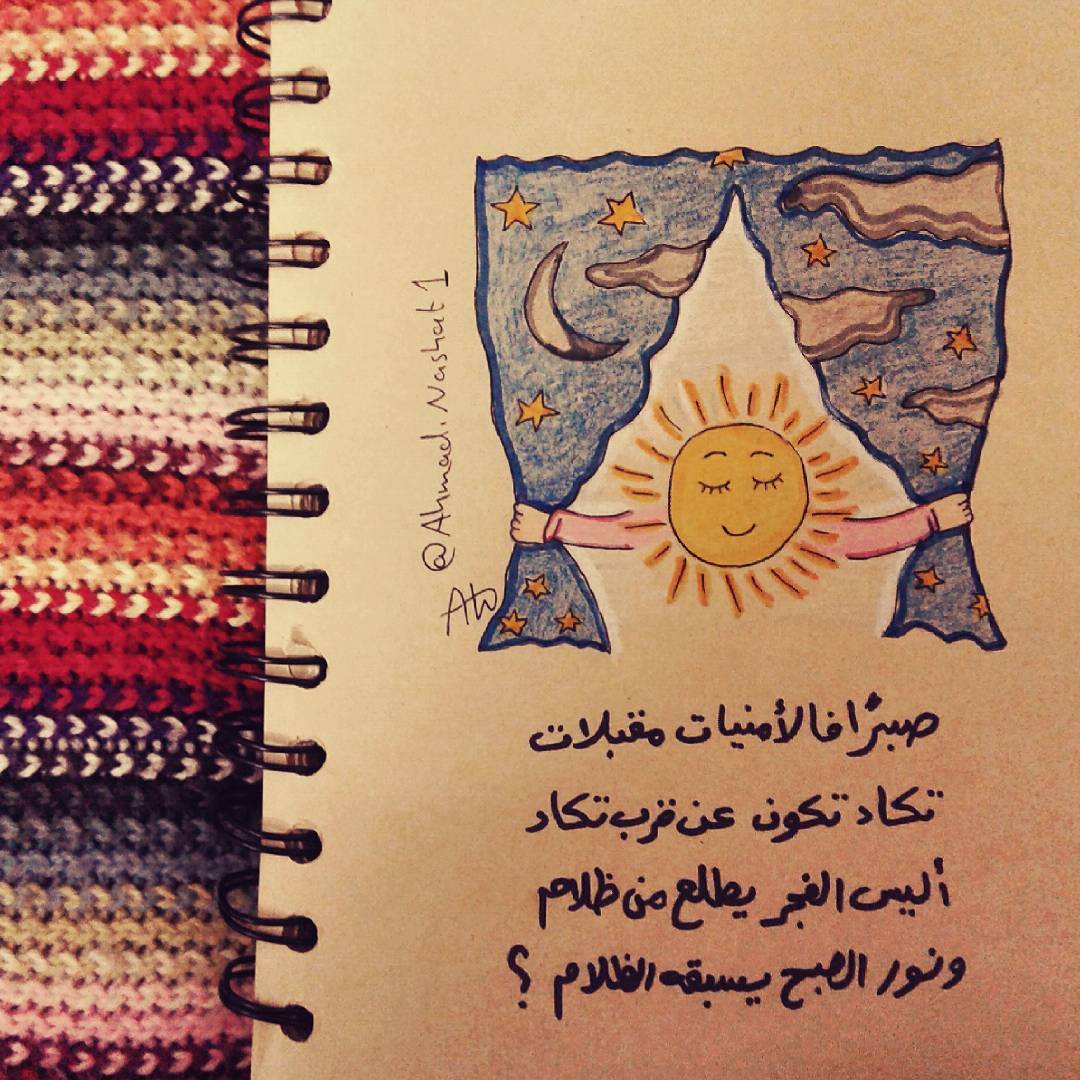 @Ahmad.Nashat1
صبرًا فالأمنيات مقبلات
تكاد تكون عن قرب تكاد
أليس الفجر يطلع من ظلام
ونور الصبح يسبقه الظلام ؟